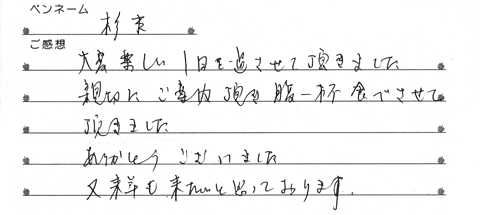 ペンネーム
ご感想
大変楽しい1日を過させて頂きました
親切にご案内頂き腹一杯食べさせて
頂きました
ありがとうございました
又来年も来たいと思っております。